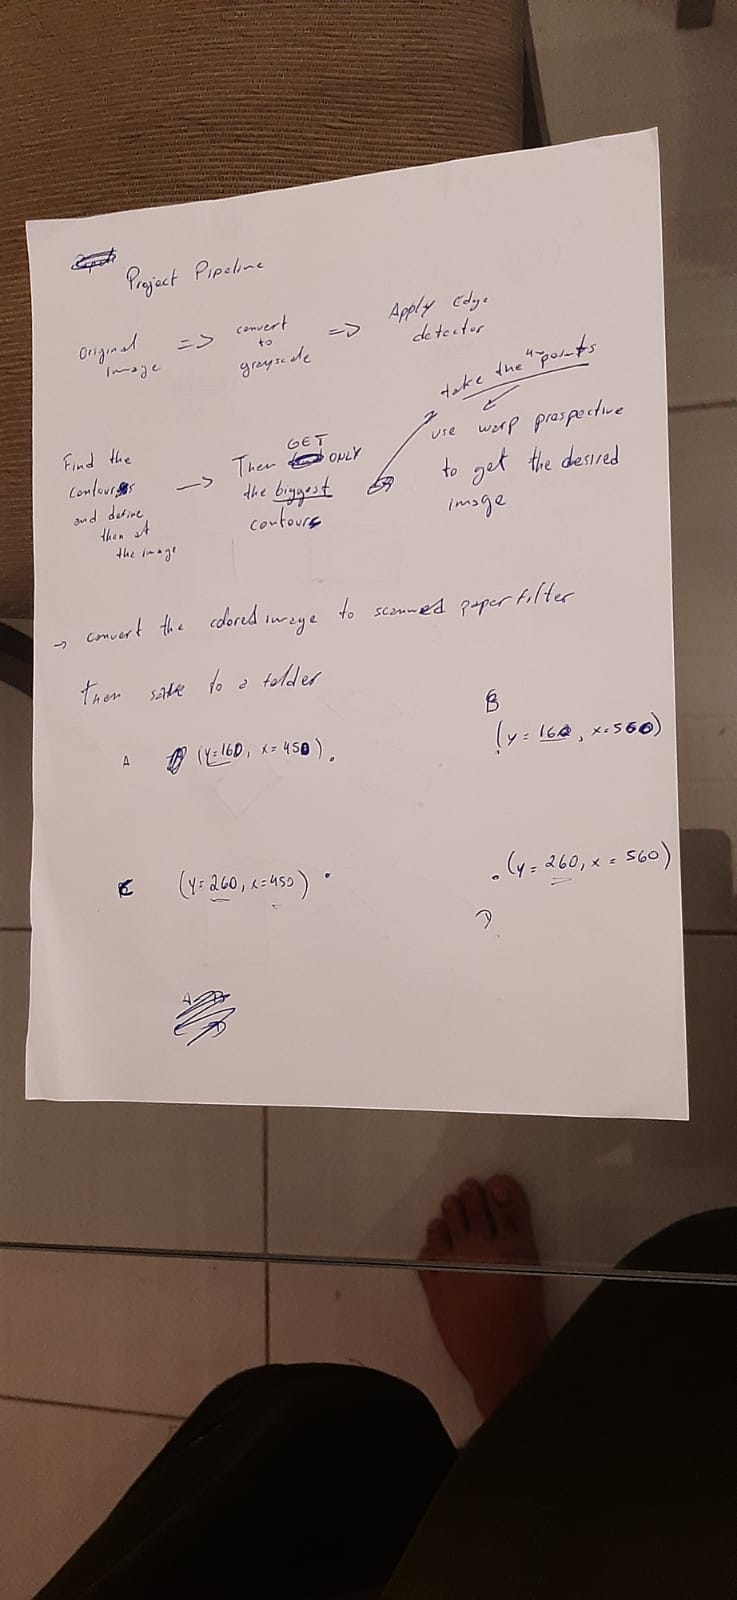 Project Pipeline
Original
image
=> convert
to
grayscale
=> Apply Edge
detector
Find the
contours
and define
then at
the image
-> Then GET ONLY
the biggest
contours
take the 4 points
use warp prospective
to get the desired
image
-> convert the colored image to scanned paper filter
Then save to a folder
A (y=160, x=450).
B
(y=160, x=560)
C (y=260, x=450) .
.(y=260, x=560)